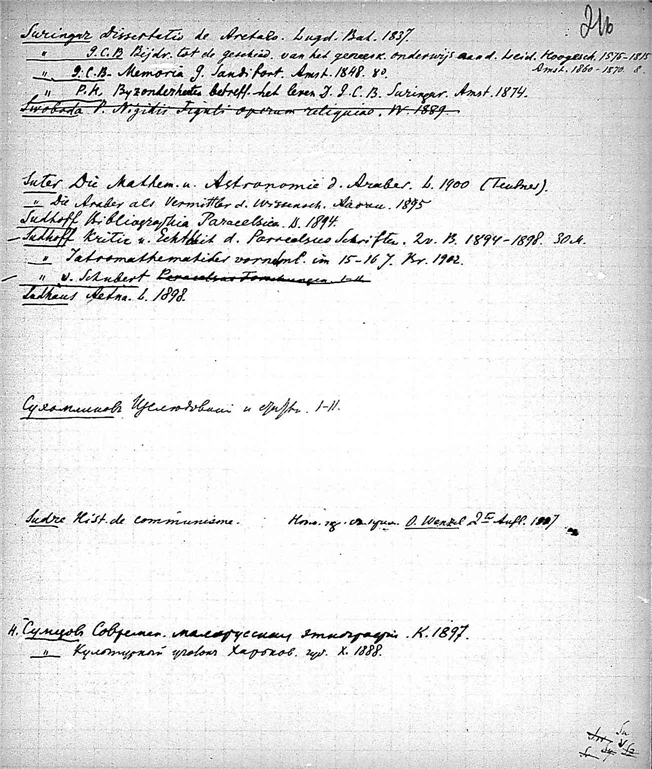 216
Suringar Dissertatio de Aretaeo. Lugd. Bat. 1837.
" G.C.B Bijdr. tot de geschied. van het geneesk. onderwijs aan d. Leid. Hoogesch. 1575-1815
Amst. 1860-1870. 8.
" G.C.B. Memoria G. Sandifort. Amst. 1848. 80.
" P.H. Byzonderheden betreff. het leven G.C.B. Suringar. Amst. 1874.
Swoboda P. Nigidii Figuli operum reliquiae. W. 1889.
Suter Die Mathem. u. Astronomie d. Araber. L. 1900 (Teubner).
" Die Araber als Vermittler d. Wissensch. Aarau. 1895
Sudhoff Bibliographia Paracelsica. B. 1894.
Sudhoff Kritic u. Echtheit d. Paracelsus Schriften. 2v. B. 1894-1898. 30 M.
" Iatromathematiker vornehml. im 15-16 J. Br. 1902.
" u. Schubert Paracelsus Forschungen. I-II
Sudhaus Aetna. L. 1898.
Сухомлиновъ Изслѣдованія и статьи. I-II.
Sudre Hist. de communisme. O. Wenzel 2 Aufl. 1907
Н. Сумцовъ Современ. малорусская этнографія. К. 1897.
" Культурный уголокъ Харьков. губ. Х. 1888.